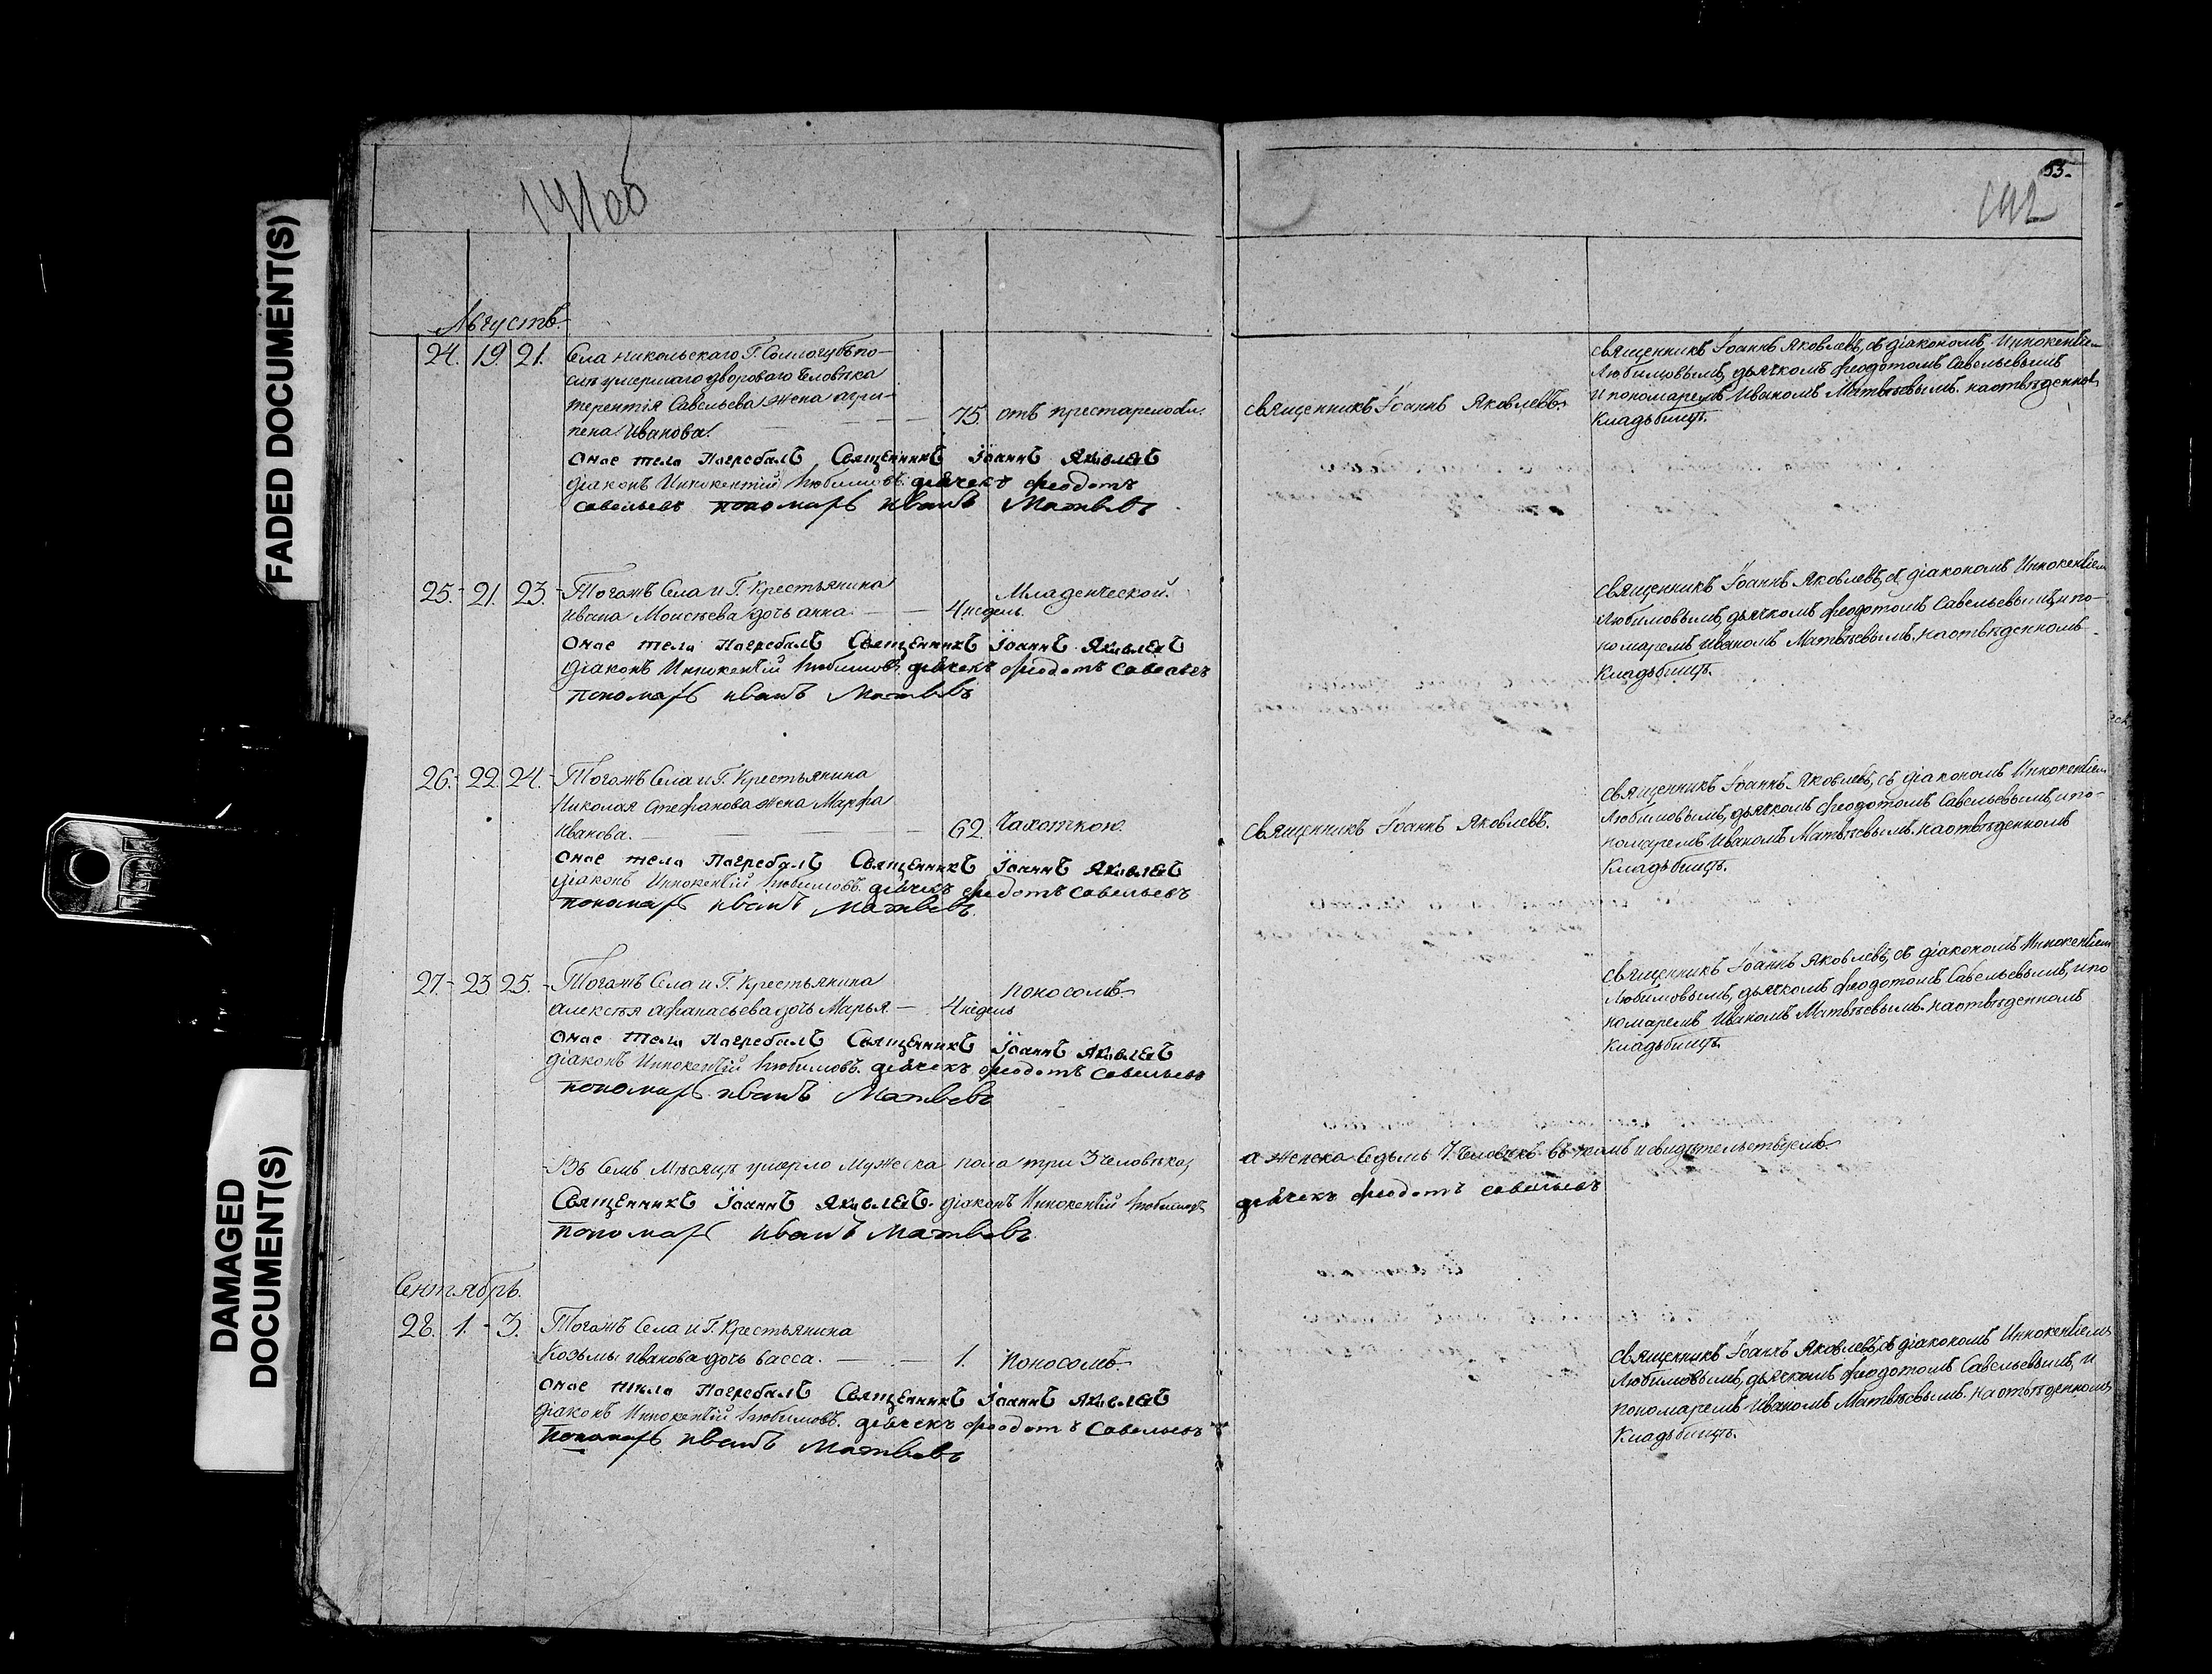 FADED DOCUMENT(S)
DAMAGED DOCUMENT(S)
141об
Августъ.
24. 19. 21. Села Никольскаго Г. Соллогубъ по-
слѣ умершаго двороваго человѣка
терентія Савельева жена агри-
пена Иванова. 75. отъ престарелости
Оное тело Погребалъ Священникъ Іоаннъ Яковлевъ
діаконъ Иннокентій Любимовъ. дьячекъ феодотъ
савельевъ пономарь иванъ Матвѣевъ
25. 21. 23. Тогожъ Села и Г. Крестьянина
ивана Моисѣева дочь анна. 4 недель. Младенческой.
Оное тело Погребалъ Священникъ Іоаннъ Яковлевъ
діаконъ Иннокентій Любимовъ. дьячекъ феодотъ савельевъ
пономарь иванъ Матвѣевъ
26. 22. 24. Тогожъ Села и Г. Крестьянина
Николая Стефанова жена Марфа
Иванова. 62. Чахоткою.
Оное тело Погребалъ Священникъ Іоаннъ Яковлевъ
діаконъ Иннокентій Любимовъ. дьячекъ феодотъ савельевъ
пономарь иванъ Матвѣевъ.
27. 23. 25. Тогожъ Села и Г. Крестьянина
алексѣя афанасьева дочь Марья. 4 недель поносомъ
Оное Тело Погребалъ Священникъ Іоаннъ Яковлевъ
діаконъ Иннокентій Любимовъ. дьячекъ феодотъ савельевъ
пономарь иванъ Матвѣевъ
Въ Семъ Мѣсяцѣ умерло Мужеска пола три 3 человѣка,
Священникъ Іоаннъ Яковлевъ. діаконъ Иннокентій Любимовъ
пономарь иванъ Матвѣевъ
Сентябрь.
28. 1. 3. Тогожъ Села и Г. Крестьянина
Козьмы иванова дочь васса. 1. Поносомъ
Оное тѣло Погребалъ Священникъ Іоаннъ Яковлевъ
діаконъ Иннокентій Любимовъ. дьячекъ феодотъ савельевъ
пономарь иванъ Матвѣевъ
55.
142
Священникъ Іоаннъ Яковлевъ.
священникъ Іоаннъ Яковлевъ, съ діакономъ Иннокентіем
Любимовымъ, дьячкомъ феодотомъ Савельевымъ
и пономаремъ Иваномъ Матвѣевымъ. на отвѣденном
Кладьбищѣ.
священникъ Іоаннъ Яковлевъ, съ діакономъ Иннокентіем
Любимовымъ, дьячкомъ феодотомъ Савельевымъ, и по-
номаремъ Иваномъ Матвѣевымъ. на отвѣденномъ
Кладьбищѣ.
священникъ Іоаннъ Яковлевъ.
священникъ Іоаннъ Яковлевъ, съ діакономъ Иннокентіем
Любимовымъ, дьячкомъ феодотомъ Савельевымъ, и по-
номаремъ Иваномъ Матвѣевымъ. на отвѣденномъ
Кладьбищѣ.
священникъ Іоаннъ Яковлевъ, съ діакономъ Иннокентіем
Любимовымъ, дьячкомъ феодотомъ Савельевымъ, и по
номаремъ Иваномъ Матвѣевымъ. на отвѣденномъ
Кладьбищѣ.
а женска Седьмь 7. Человѣкъ въ томъ и свидѣтельствуемъ.
дьячекъ феодотъ савельевъ
священникъ Іоаннъ Яковлевъ, съ діакономъ Иннокентіемъ
Любимовымъ, дьячкомъ феодотомъ Савельевымъ, и
пономаремъ Иваномъ Матвѣевымъ. на отвѣденномъ
Кладьбищѣ.